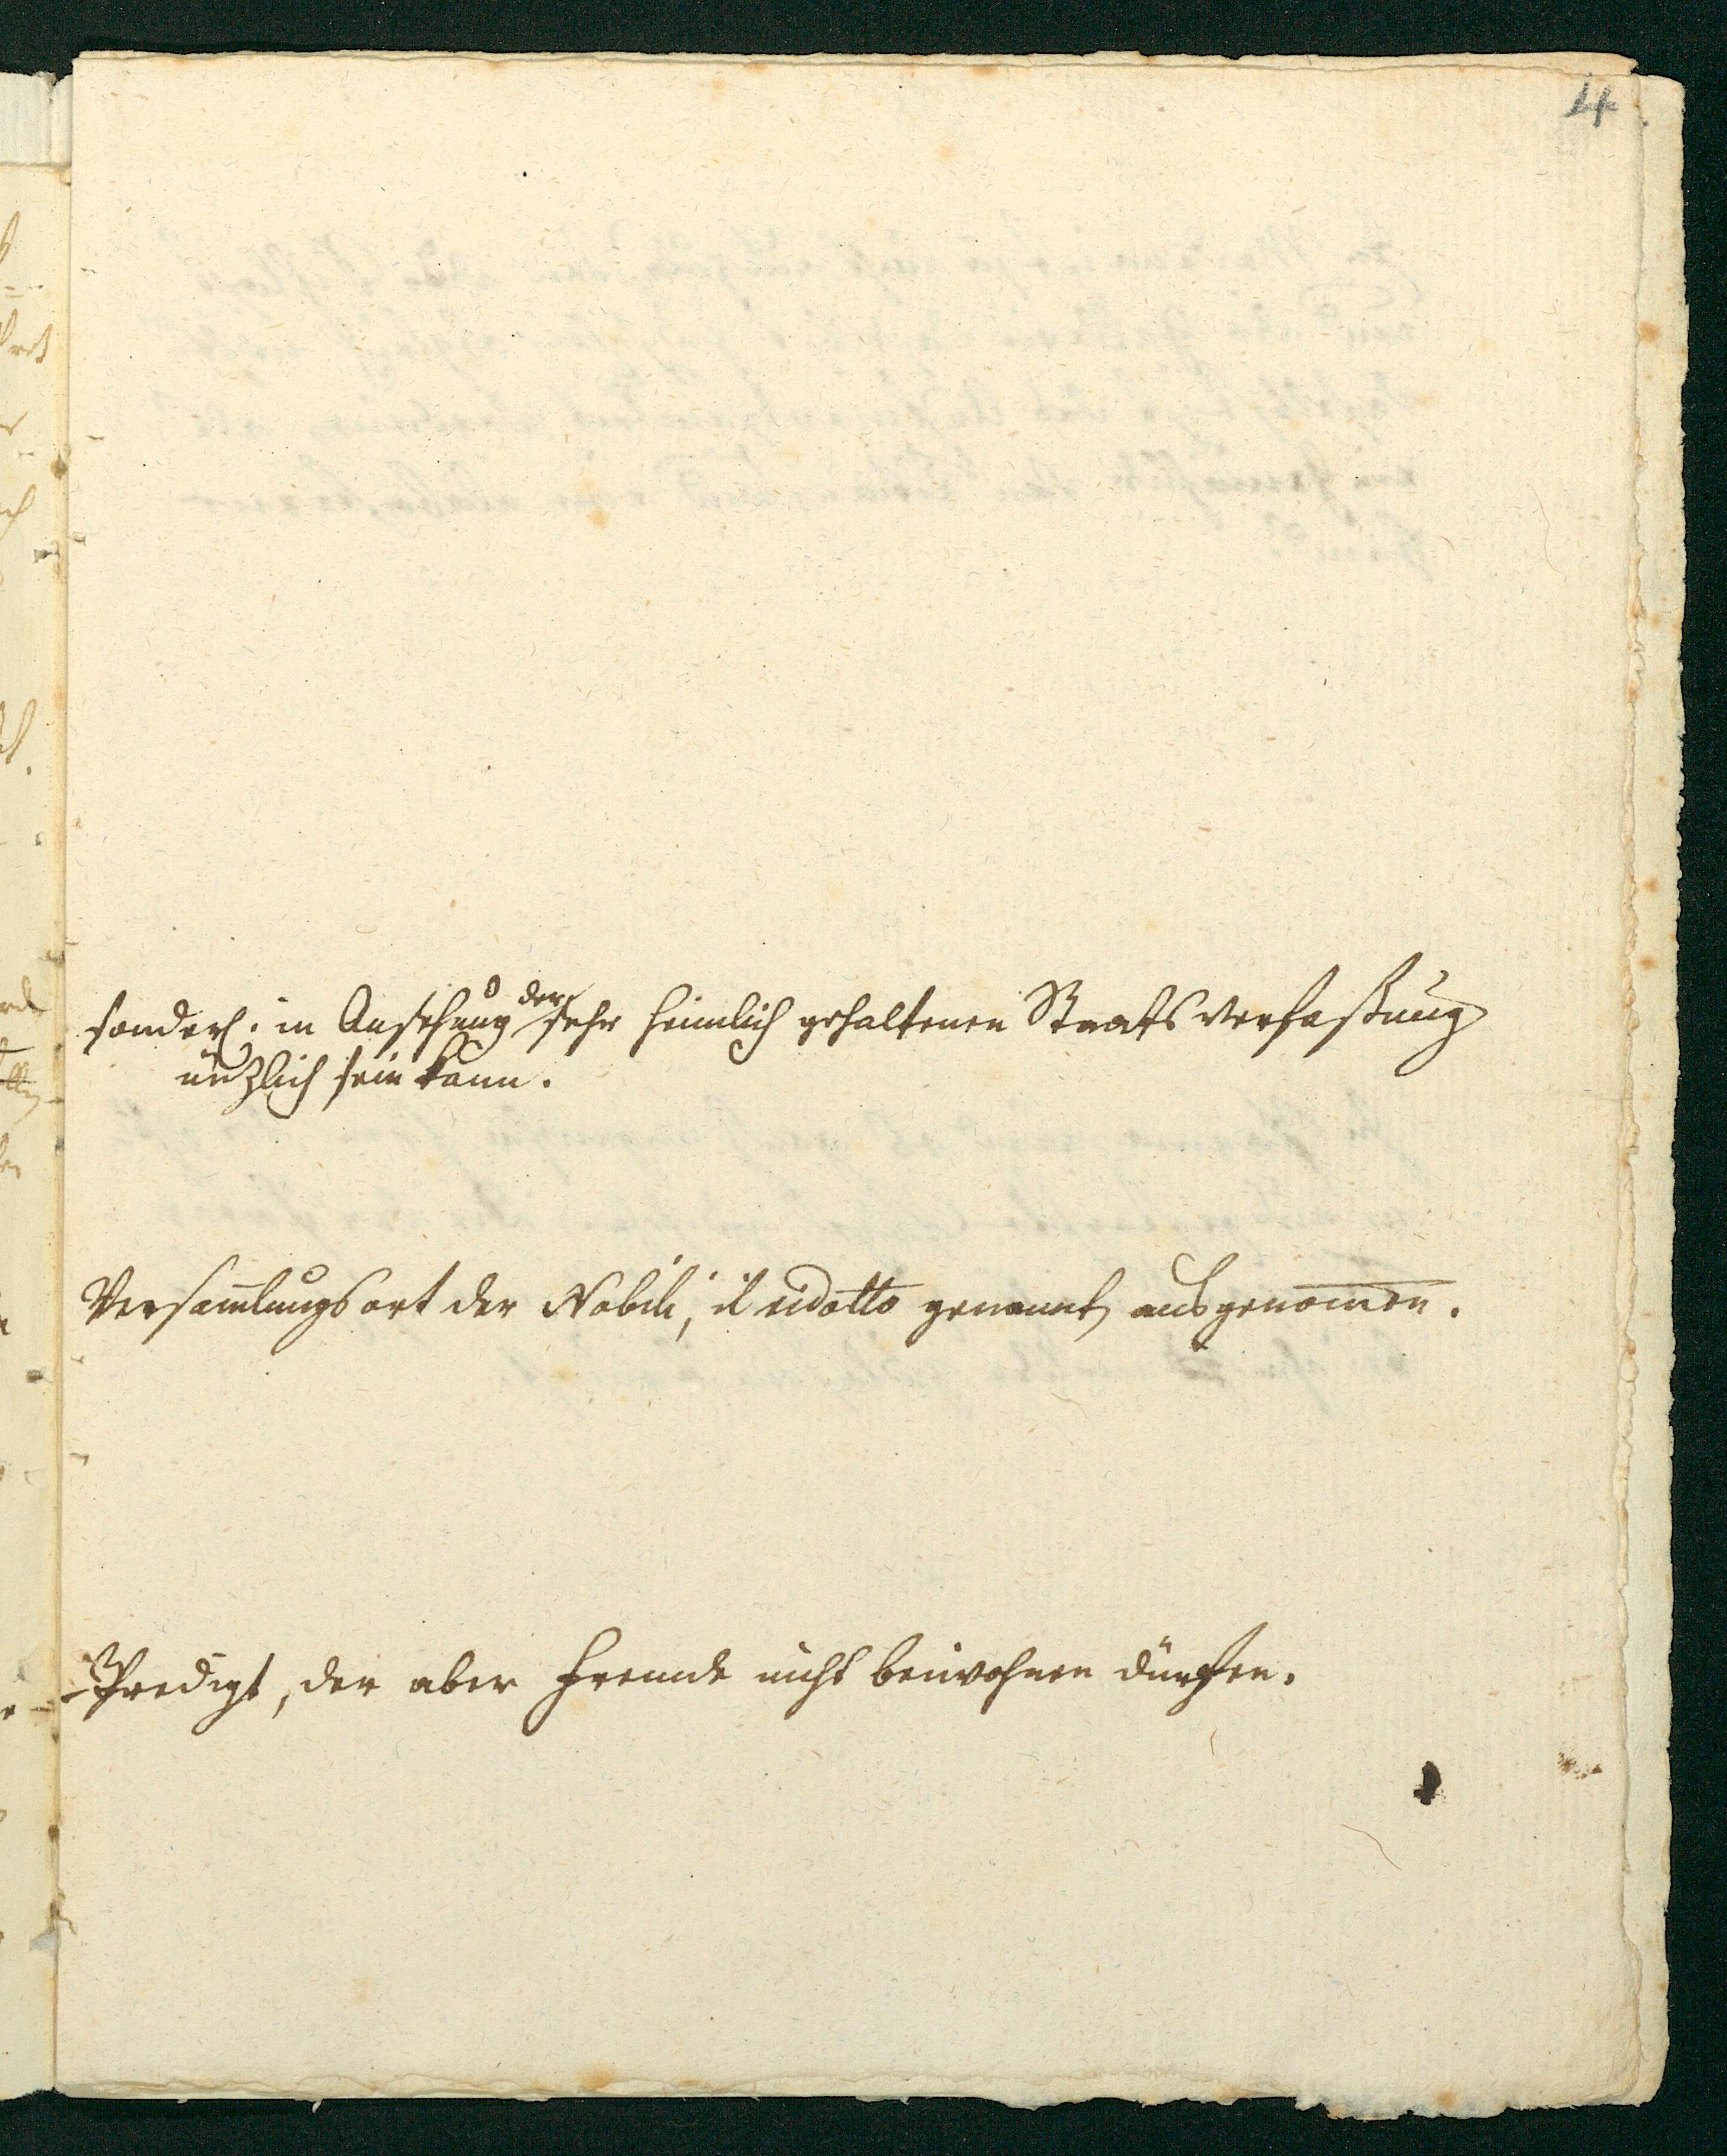 4
sonderl. in Ansehung der sehr heimlich gehaltenen Staatsverfaßung
nüzlich sein kann.
Versam̄lungsort der Nobili, il ridotto genannt, ausgenom̄en.
Predigt, der aber Fremde nicht beiwohnen dürfen.